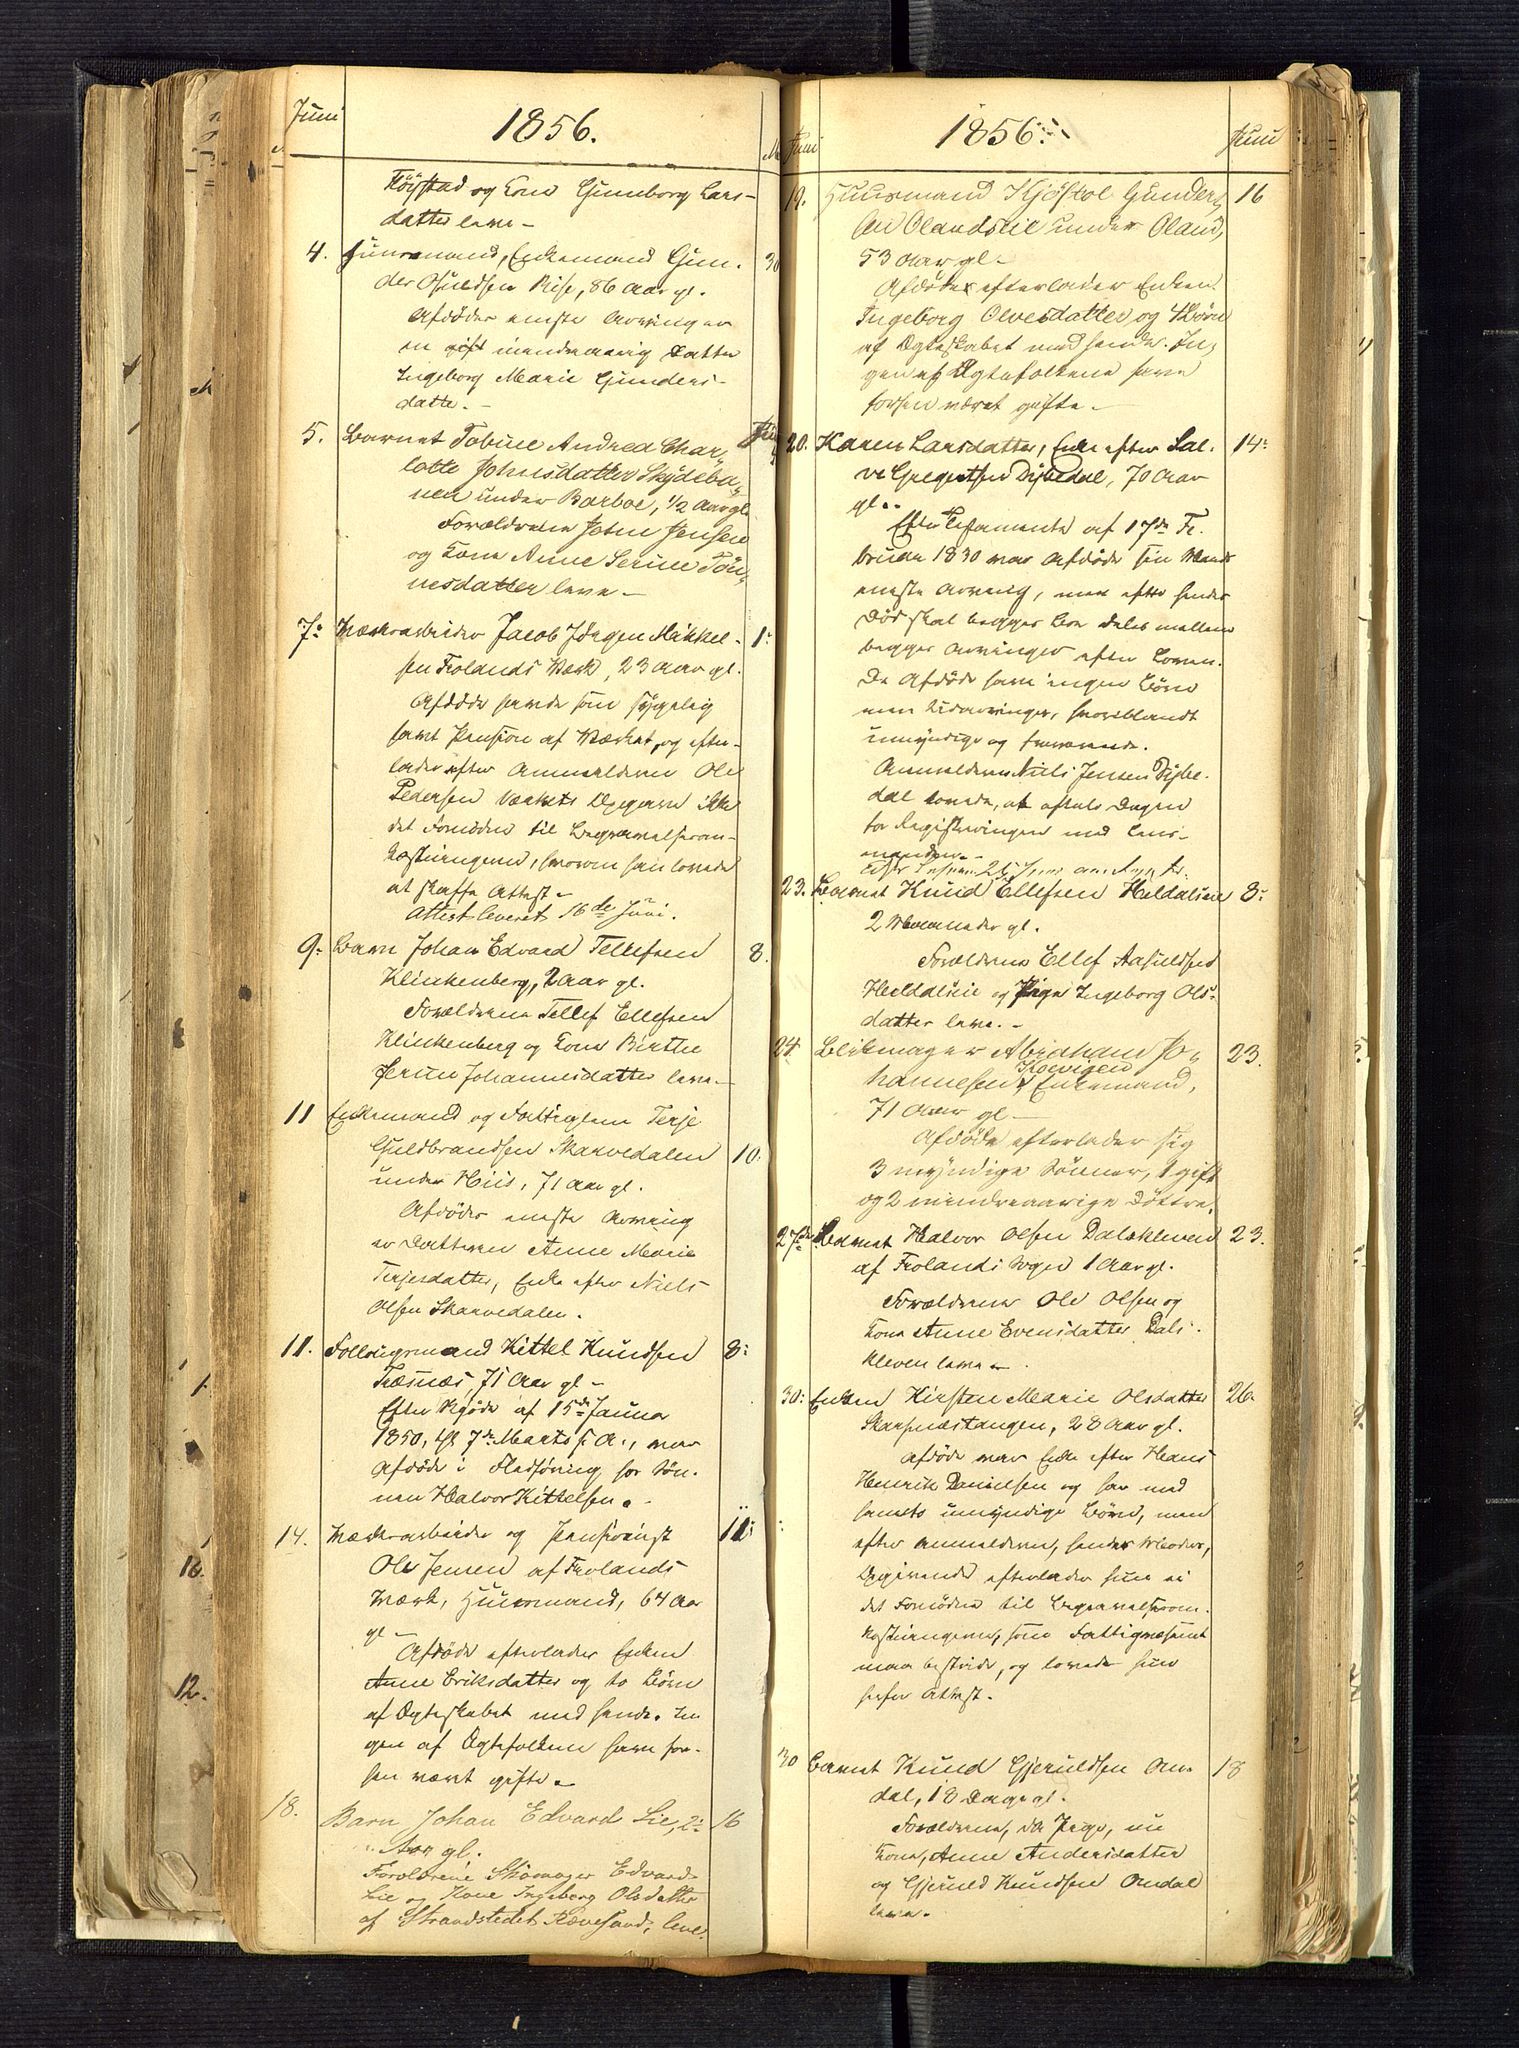 Juni
1856.
M
Høystad og Kone Gunnborg Lars-
datter leve -
4. Huusmand, Enkemand Gun- 30
der Osuldsen Rise, 86 Aar gl.
Afdødes eneste Arving er
en gift mindreaarig Datter
Ingeborg Marie Gunders-
datter. -
5. Barnet Tobine Andrea Char-
lotte Johnsdatter Skydeba-
nen under Barboe, 1/2 Aar gl.
Forældrene John Jensen
og Kone Anne Serine Tøn-
nesdatter leve -
7: Værksarbeider Jacob Jørgen Mikkel- 1:
sen Frolands Værk, 23 Aar gl.
Afdøde havde som sygelig
havt Pension af Værket, og efter-
lader efter Anmelderen Ole
Pedersen Værkets Opgivende ikke
det Fornødne til Begravelsesom-
kostningerne, hvorom han lovede
at skaffe Attest -
Attest leveret 16de Juni.
9: Barn Johan Edvard Tellefsen 8.
Klinkenberg, 2 Aar gl.
Forældrene Tellef Ellefsen
Klinkenberg og Kone Birthe
Serine Johannesdatter leve -
11 Enkemand og Fattiglem Terje
Guldbrandsen Skarvedalen 10:
under Hiis, 71 Aar gl.
Afdødes eneste Arving
er Datteren Anne Marie
Terjesdatter, Enke efter Niels
Olsen Skarvedalen.
11. Føllougsmand Kittel Knudsen 8:
Træsnæs, 71 Aar gl -
Efter Skjøde af 15de Januar
1850, tgl 7de Marts s. A., var
Afdøde i Fladføring hos Søn-
nen Halvor Kittelsen. -
14. Værksarbeider og Pensionist 11:
Ole Jensen af Frolands
Værk, Huusmand, 64 Aar
gl -
Afdøde efterlader Enken
Anne Eriksdatter og to Børn
af Ægteskabet med hende. In
gen af Ægtefolkene have for-
hen været gifte -
18. Barn Johan Edvard Lie, 2: 16
Aar gl.
Forældrene Skomager Edvard
Lie og Kone Ingeborg Olsdatter
af Strandstedet Rævesand, leve.
Juni
1856
Juni
19. Huusmand Kjøstol Gunder- 16
sen Olandslie under Oland,
53 Aar gl -
Afdøde efterlader Enken
Ingeborg Olvesdatter og Børn
af Ægteskabet med hende. In-
gen af Ægtefolkene have
forhen været gifte -
20. Karen Larsdatter, Enke efter Sal- 14:
ve Gregertsen Dybedal, 70 Aar
gl. -
Efter Testamente af 17de Fe-
bruar 1830 var Afdøde sin Mands
eneste Arving, men efter hendes
Død skal begges Boe deles mellem
begges Arvinger efter Loven.
Da Afdøde have ingen Børn
men Udarvinger, hvoriblandt
umyndige og fraværende.
Anmelderen Niels Jensen Dybe-
dal lovede, at aftale Dagen
for Registreringen med Lens-
manden. -
23. Barnet Knud Ellefsen Heldalslie 8:
2 Maaneder gl.
Forældrene Ellef Aasuldsen
Heldalslie og Pige Ingeborg Ols-
datter leve. -
24. Blikmager Abraham Jo- 23.
hannesen Kovigen Enkemand,
71 Aar gl -
Afdøde efterlader sig
3 myndige Sønner, 1 gift
og 2 mindreaarige Døttre.
27de Barnet Halvor Olsen Dalskleven 23.
af Frolands Sogn 1 Aar gl.
Forældrene Ole Olsen og
Kone Anne Evensdatter Dals-
kleven leve -
30: Enken Kirsten Marie Olsdatter 26.
Skarpnæstangen, 28 Aar gl.
Afdøde var Enke efter Hans
Henrik Danielsen og har med
ham umyndige Børn, men
efter Anmelderen, hendes Moders,
Opgivende efterlader hun ei
det Fornødne til Begravelsesom-
kostningerne, som Fattigvæsenet
maa bestride, og lovede hun
herfor Attest.
30 Barnet Knud Gjeruldsen Om- 18
dal, 18 Dage gl.
Forældrene, da Pige, nu
Kone, Anne Andersdatter
og Gjeruld Knudsen Omdal
leve.
1.
16.
12.